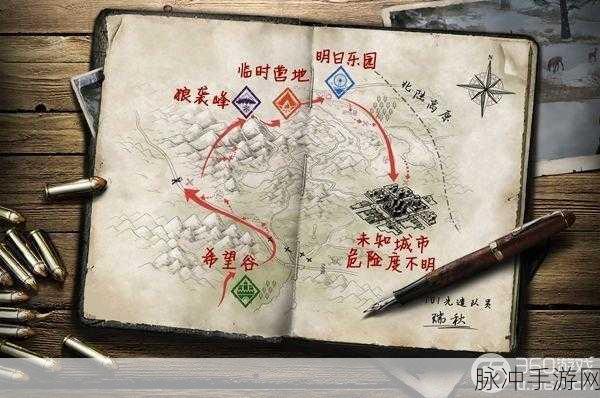 明日乐园
临时营地
狼袭峰
北陆高原
希望谷
未知城市
危险度不明
101先遣队员
瑞秋
360游戏
脉冲手游网